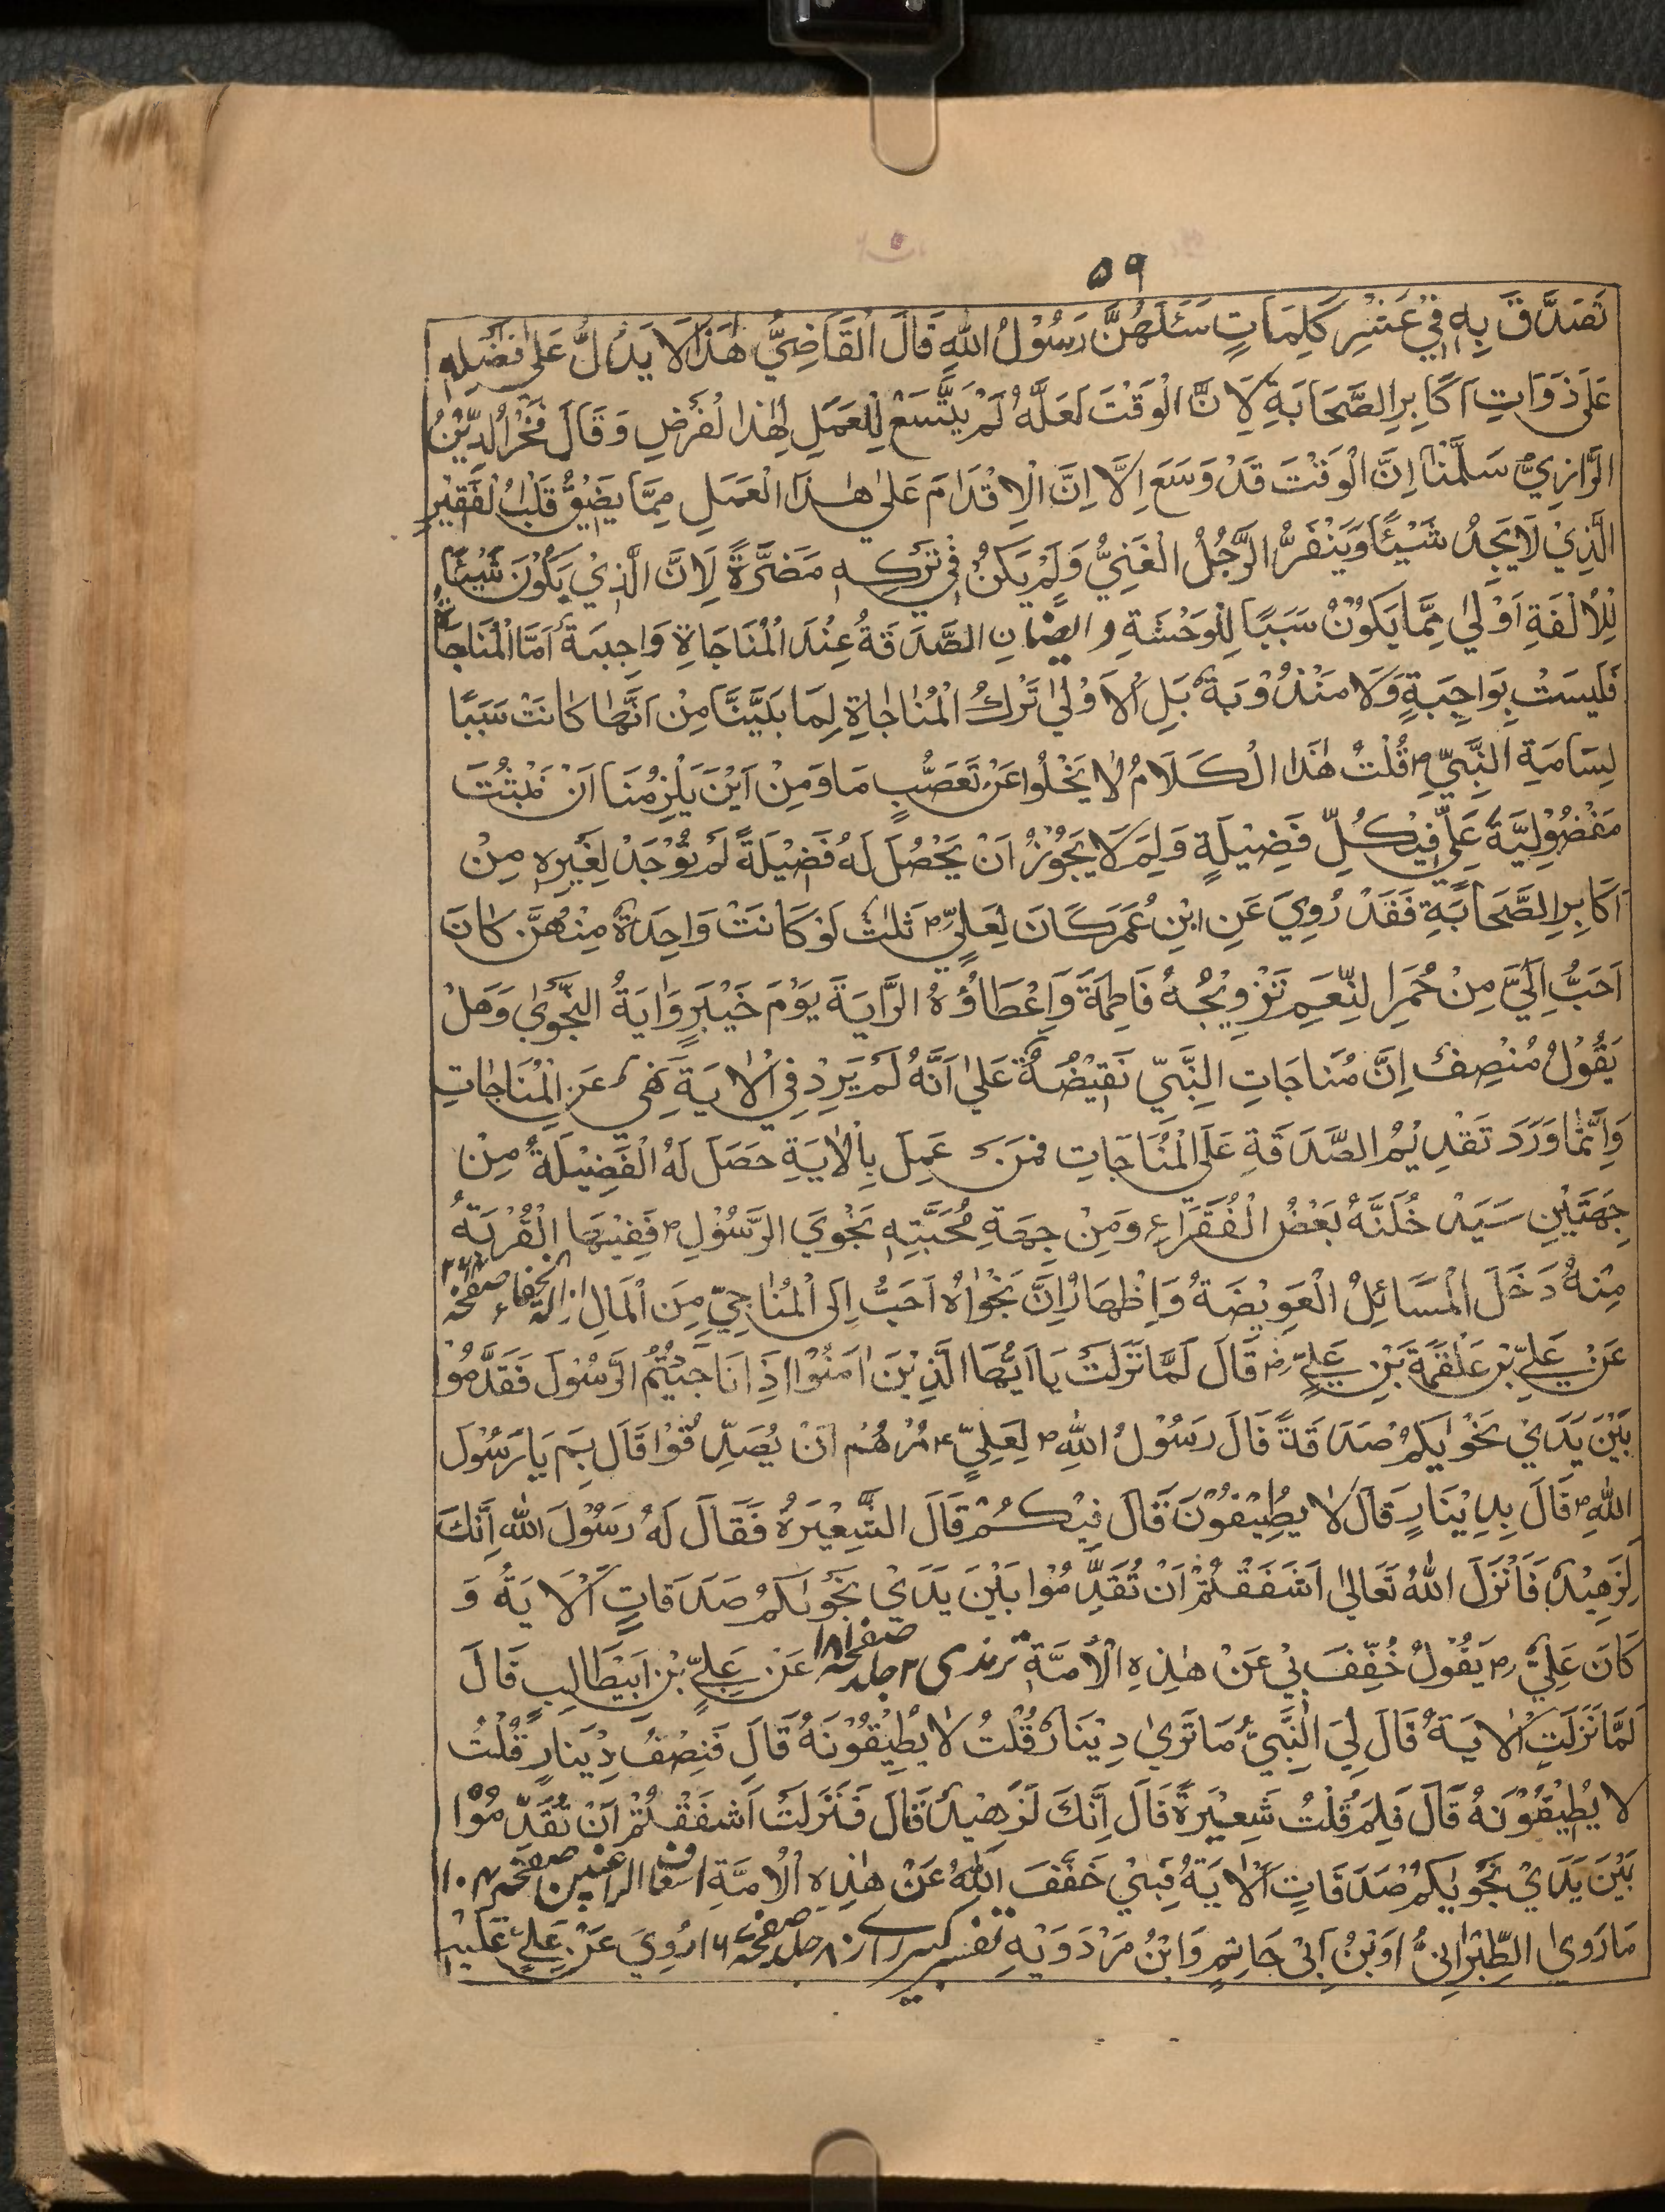 ٥٩
تَصَدَّقَ بِهٖ فِيْ عَشْرِ كَلِمَاتٍ سَئَلَهُنَّ رَسُوْلُ اللّٰهِ قَالَ الْقَاضِيُّ هٰذَا لَا يَدُلُّ عَلٰى فَضْلِهٖ
عَلٰى ذَوَاتِ اَكَابِرِ الصَّحَابَةِ لِاَنَّ الْوَقْتَ لَعَلَّهُ لَمْ يَتَّسِعْ لِلْعَمَلِ لِهٰذَا الْفَرْضِ وَقَالَ فَخْرُ الدِّيْنُ
الرَّازِيُّ سَلَّمْنَا اِنَّ الْوَقْتَ قَدْ وَسَعَ اِلَّا اِنَّ الْاِقْدَامَ عَلٰى هٰذَا الْعَمَلِ مِمَّا يَضِيْقُ قَلْبُ الْفَقِيْرِ
الَّذِيْ لَا يَجِدُ شَيْئًا وَيَنْفَرُّ الرَّجُلُ الْغَنِيُّ وَلَمْ يَكُنْ فِيْ تَرْكِهٖ مَضَرَّةً لِاَنَّ الَّذِيْ يَكُوْنَ شَيْئًا
لِلْاُلْفَةِ اَوْلٰى مِمَّا يَكُوْنُ سَبَبًا لِلْوَحْشَةِ و ايضًا اِنِ الصَّدَقَةُ عِنْدَ الْمُنَاجَاةِ وَاجِبَةٌ اَمَّا الْمُنَاجَاةُ
فَلَيسَتْ بِوَاجِبَةٍ وَلَا مَنْدُوْبَةٌ بَلِ الْاَوْلٰى تَرْكُ الْمُنَاجَاةِ لِمَا بَيَّنَّا مِنْ اَنَّهَا كَانَتْ سَبَبًا
لِسَامَيَةِ النَّبِيِّ ص قُلْتُ هٰذَا الْكَلَامُ لَا يَخْلُوا عَنْ تَعَصُّبٍ مَا وَمِنْ اَيْنَ يَلْزِمُنَا اَنْ نَثْبُتَ
مَفْضُوْلِيَّةَ عَلِيٍّ فِيْ كُلِّ فَضِيْلَةٍ وَلِمَ لَا يَجُوْزُ اَنْ يَحْصُلَ لَهُ فَضِيْلَةً لَمْ تُوْجَدْ لِغَيْرِهٖ مِنْ
اَكَابِرِ الصَّحَابَةِ فَقَدْ رُوِيَ عَنِ ابْنِ عُمَرَ كَانَ لِعَلِيٍّ ثَلٰثٌ لَوْ كَانَتْ وَاحِدَةٌ مِنْهُنَّ كَانَ
اَحَبُّ اِلَيَّ مِنْ حُمَرِ النِّعَمِ تَزْوِيْجُهُ فَاطِمَةَ وَاِعْطَاؤُهُ الرَّايَةَ يَوْمَ خَيْبَرٍ وَايَةُ النَّجْوٰى وَهَلْ
يَقُوْلُ مُنْصِفٌ اِنَّ مُنَاجَاتِ النَّبِيِّ نَقِيْضَةٌ عَلٰى اَنَّهُ لَمْ يَرِدْ فِي الْاٰيَةِ نَهٰى عَنِ الْمُنَاجَاتِ
وَاِنَّمَا وَرَدَ تَقْدِيْمُ الصَّدَقَةِ عَلَى الْمُنَاجَاتِ فَمَنْ عَمِلَ بِالْاٰيَةِ حَصَلَ لَهُ الْفَضِيْلَةُ مِنْ
جِهَتَيْنِ سَيَدْ خُلَنَّهُ بَعْضُ الْفُقَرَاءِ وَمِنْ جِهَةِ مُحَبَّتِهٖ نَجْوَي الرَّسُوْلِ ص فَفِيْهَا الْقُرْبَةُ
مِنْهُ دَخَلَ الْمَسَائِلُ الْعَوِيْضَةُ وَاِظْهَارُ اِنَّ نَجْوَاهُ اَحَبُّ اِلَى الْمُنَاجِيِّ مِنَ الْمَالِ ازالة الخفاء صفحه
عَنْ عَلِيِّ بْنِ عَلْقَمَةَ بَنِ عَلِيٍّ رض قَالَ لَمَّا نَزَلَتْ يَا اَيُّهَا الَّذِيْنَ اٰمَنُوْا اِذَا نَاجَيْتُمُ الرَّسُوْلَ فَقَدِّمُوْا
بَيْنَ يَدَيْ نَجْوٰيكُمْ صَدَقَةً قَالَ رَسُوْلُ اللّٰهِ ص لِعَلِيٍّ ع مُرْهُمْ اَنْ يُصَدِّقُوْا قَالَ بِمَ يَا رَسُوْلَ
اللّٰهِ ص قَالَ بِدِيْنَارٍ قَالَ لَا يُطِيْقُوْنَ قَالَ فَبِكُمْ قَالَ الشَّعِيْرَةُ فَقَالَ لَهُ رَسُوْلَ اللّٰهِ اِنَّكَ
لَزَهِيْدٌ فَاَنْزَلَ اللّٰهُ تَعَالٰى اَشْفَقْتُمْ اَنْ تُقَدِّمُوْا بَيْنَ يَدَيْ نَجْوٰيكُمْ صَدَقَاتٍ اَلْاٰيَةُ وَ
كَانَ عَلِيٌّ رض يَقُوْلُ خُفِّفَ بِيْ عَنْ هٰذِهِ الْاُمَّةِ ترمذى ٢ جلد صفحه عَنْ عَلِيِّ بْنِ اَبِيْطَالِبٍ قَالَ
لَمَّا نَزَلَتِ الْاٰيَةُ قَالَ لِيَ النَّبِيُّ مَا تَرٰى دِيْنَارٌ قُلْتُ لَا يُطِيْقُوْنَهُ قَالَ فَنِصْفُ دِيْنَارٍ قُلْتُ
لَا يُطِيْقُوْنَهُ قَالَ فَلِمَ قُلْتُ شَعِيْرَةً قَالَ اِنَّكَ لَزَهِيْدٌ قَالَ فَنَزَلَتْ اَشْفَقْتُمْ اَنْ تُقَدِّمُوْا
بَيْنَ يَدَيْ نَجْوٰيكُمْ صَدَقَاتٍ اَلْاٰيَةُ فَبِيْ خَفَّفَ اللّٰهُ عَنْ هٰذِهِ الْاُمَّةِ اسعاف الراغبين صفحه ١٠٤
مَا رَوٰى الطِّبْرَانِيُّ اوَبْنُ اَبِيْ حَاتِمٍ وَابْنُ مَرْدَوَيْهِ تفسير كبير رازى ٨ جلد صفحه ١٦ رُوِيَ عَنْ عَلِيٍّ عَلَيْهِ